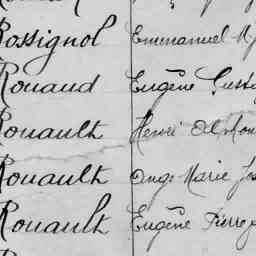 Rossignol Emmanuel
Rouaud Eugène
Rouault Henri
Rouault Ange Marie
Rouault Eugène Pierre